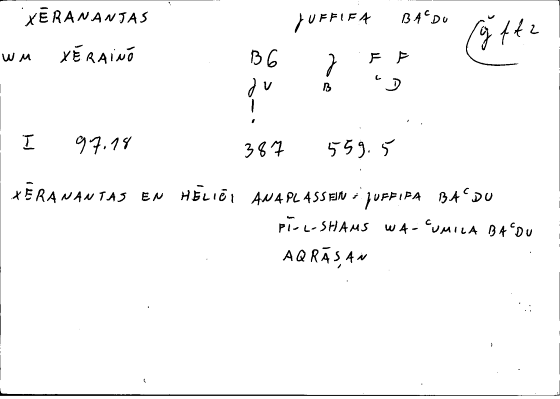 XĒRANANTAS JUFFIFA BAᶜDU ǧff2
WM XĒRAINŌ B6 J F F
JU B ᶜD
!
I 97.18 387 559.5
XĒRANANTAS EN HĒLIŌI ANAPLASSEIN = JUFFIFA BAᶜDU
FĪ-L-SHAMS WA-ᶜUMILA BAᶜDU
AQRĀṢAN